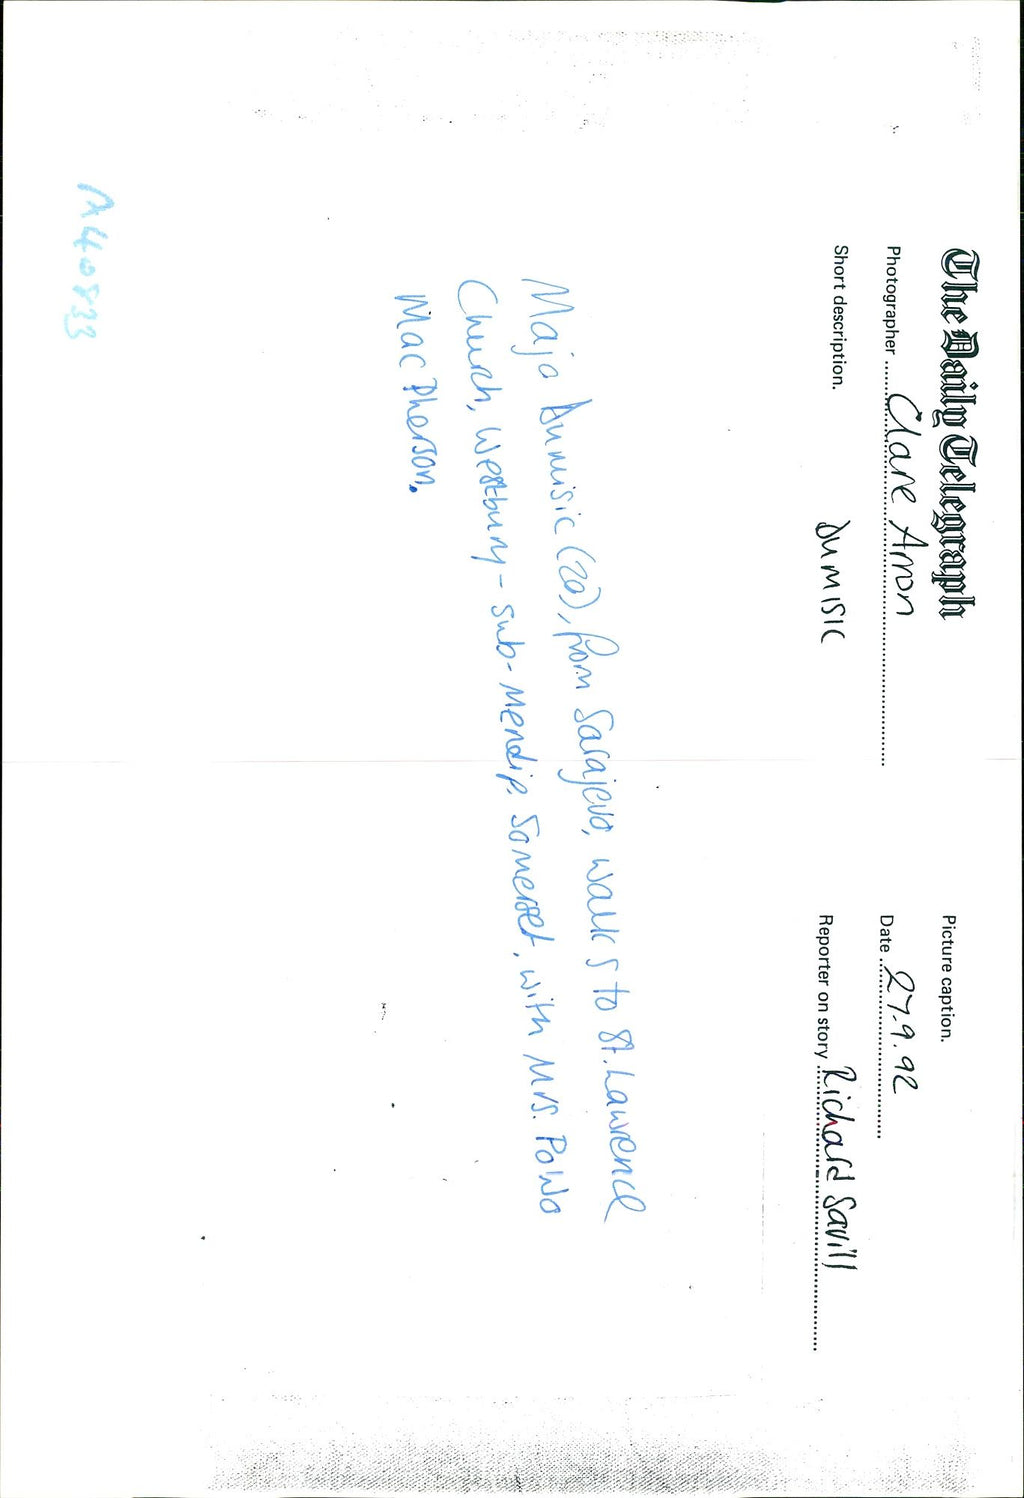 The Daily Telegraph
Picture caption.
Photographer Clare Arron
Date 27.9.92
Short description. DUMISIC
Reporter on story Richard Savill
Maja Dumisic (20), from Sarajevo, walks to St. Lawrence
Church, Westbury-sub-Mendip, Somerset, with Mrs.
MacPherson.
A40833